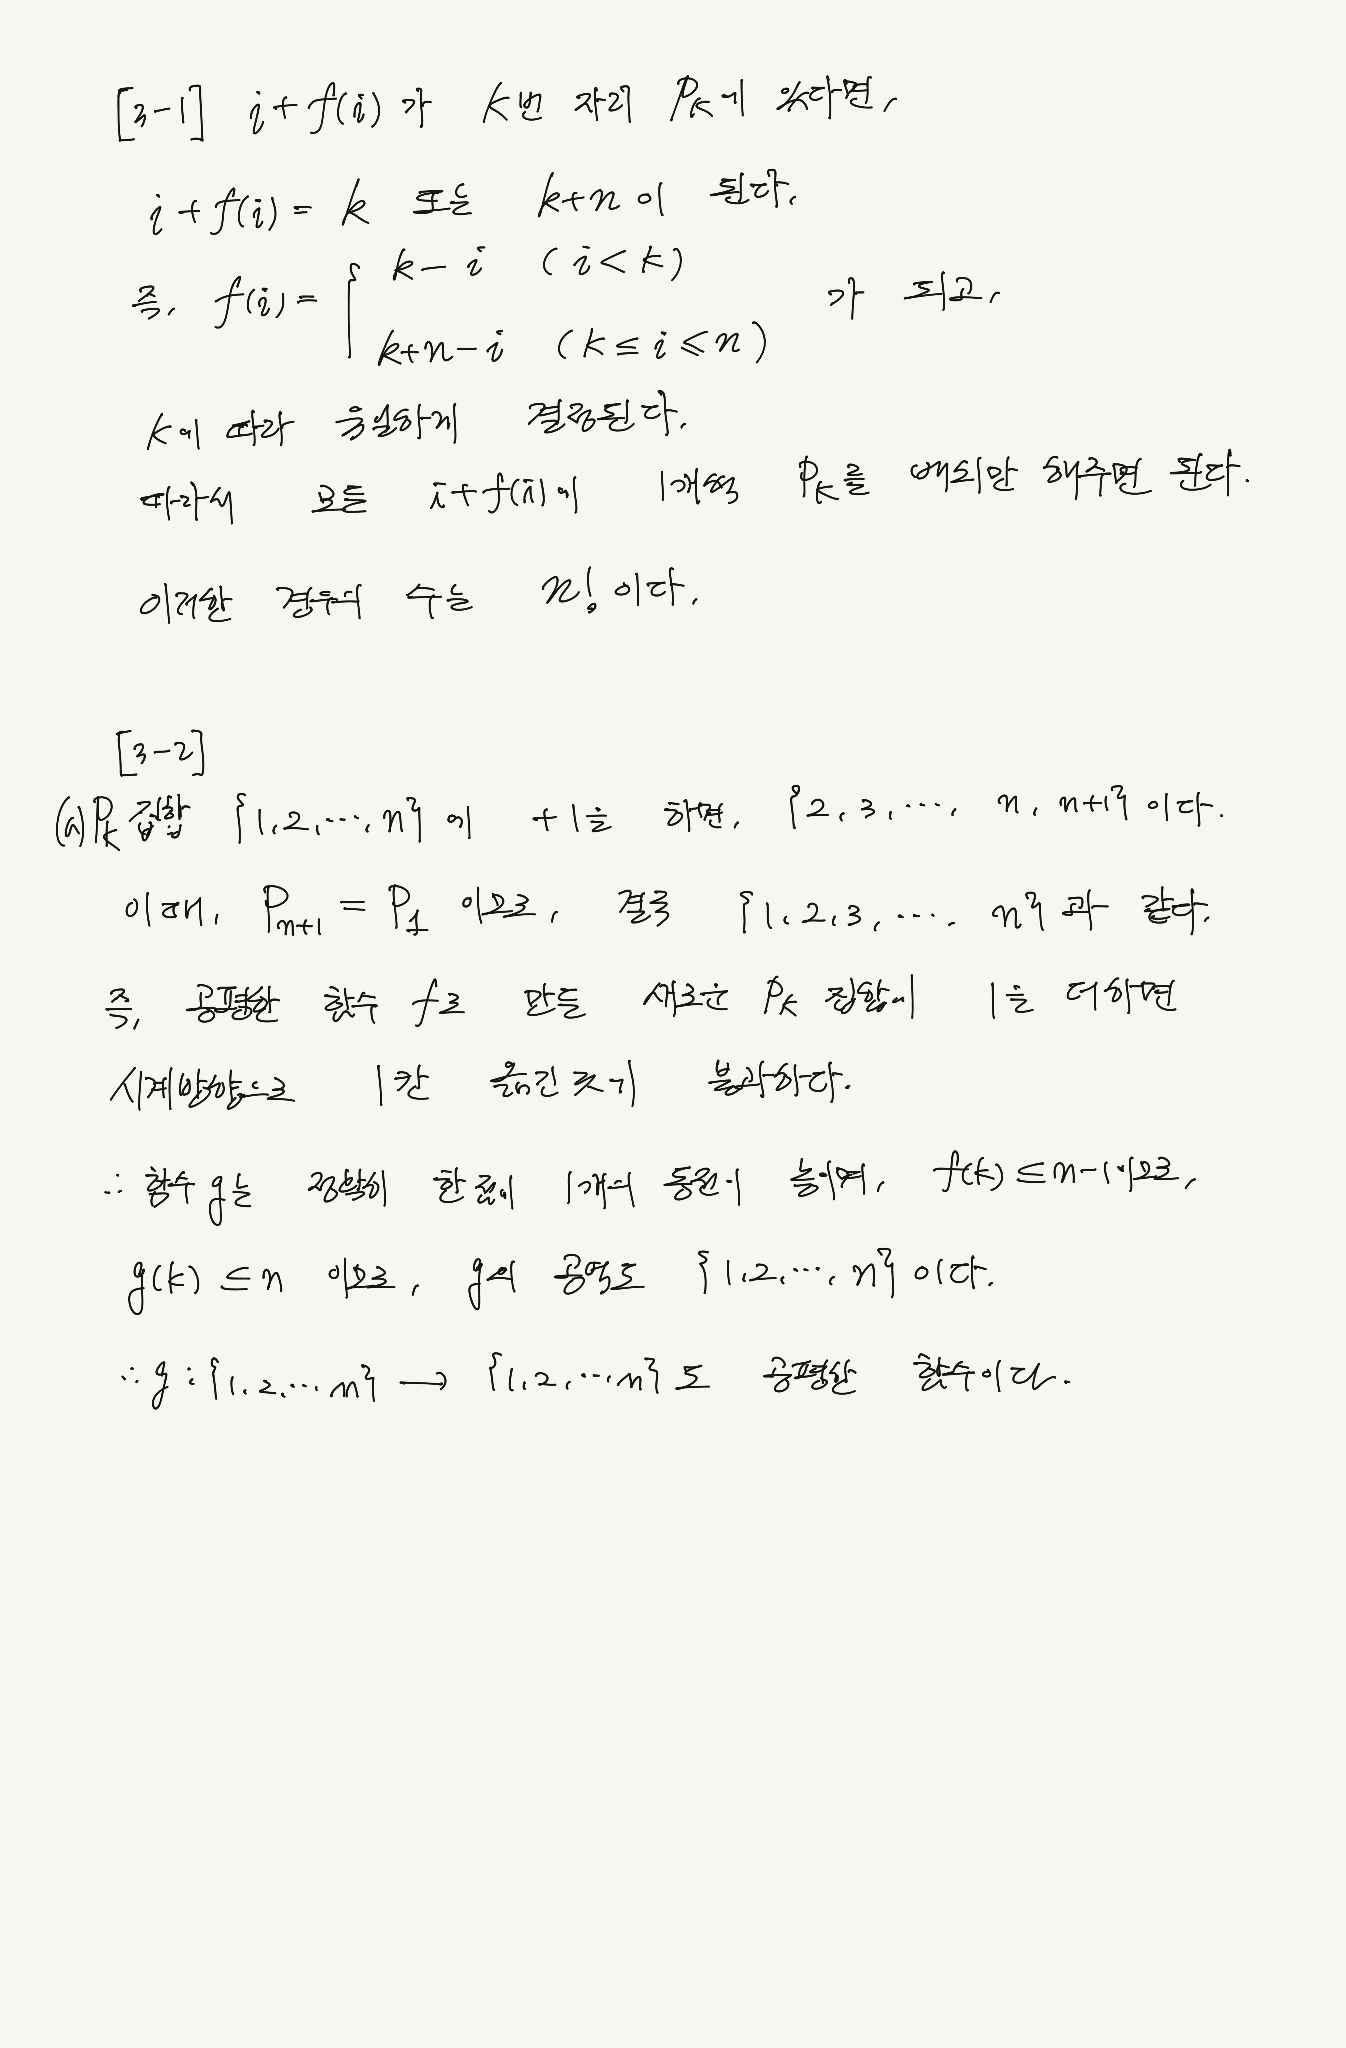 [3-1] i+f(i)가 k번 자리 P_k에 있다면,
i+f(i)= k 또는 k+n이 된다.
즉, f(i)= { k-i (i<k)
k+n-i (k≤i≤n) 가 되고,
k에 따라 유일하게 결정된다.
따라서 모든 i+f(i)에 1개씩 P_k를 배치만 해주면 된다.
이러한 경우의 수는 n! 이다.
[3-2]
(a) P_k 집합 {1,2,…,n}에 +1을 하면, {2,3,…, n, n+1}이다.
이때, P_{n+1} = P_1 이므로, 결국 {1,2,3,…, n}과 같다.
즉, 공평한 함수 f로 만든 새로운 P_k 집합에 1을 더하면
시계방향으로 1칸 옮긴 것에 불과하다.
∴ 함수 g는 정확히 한 점에 1개의 동전이 놓이며, f(k)≤n-1이므로,
g(k)≤n 이므로, g의 공역도 {1,2,…,n}이다.
∴ g:{1,2,…n} → {1,2,…,n}도 공평한 함수이다.